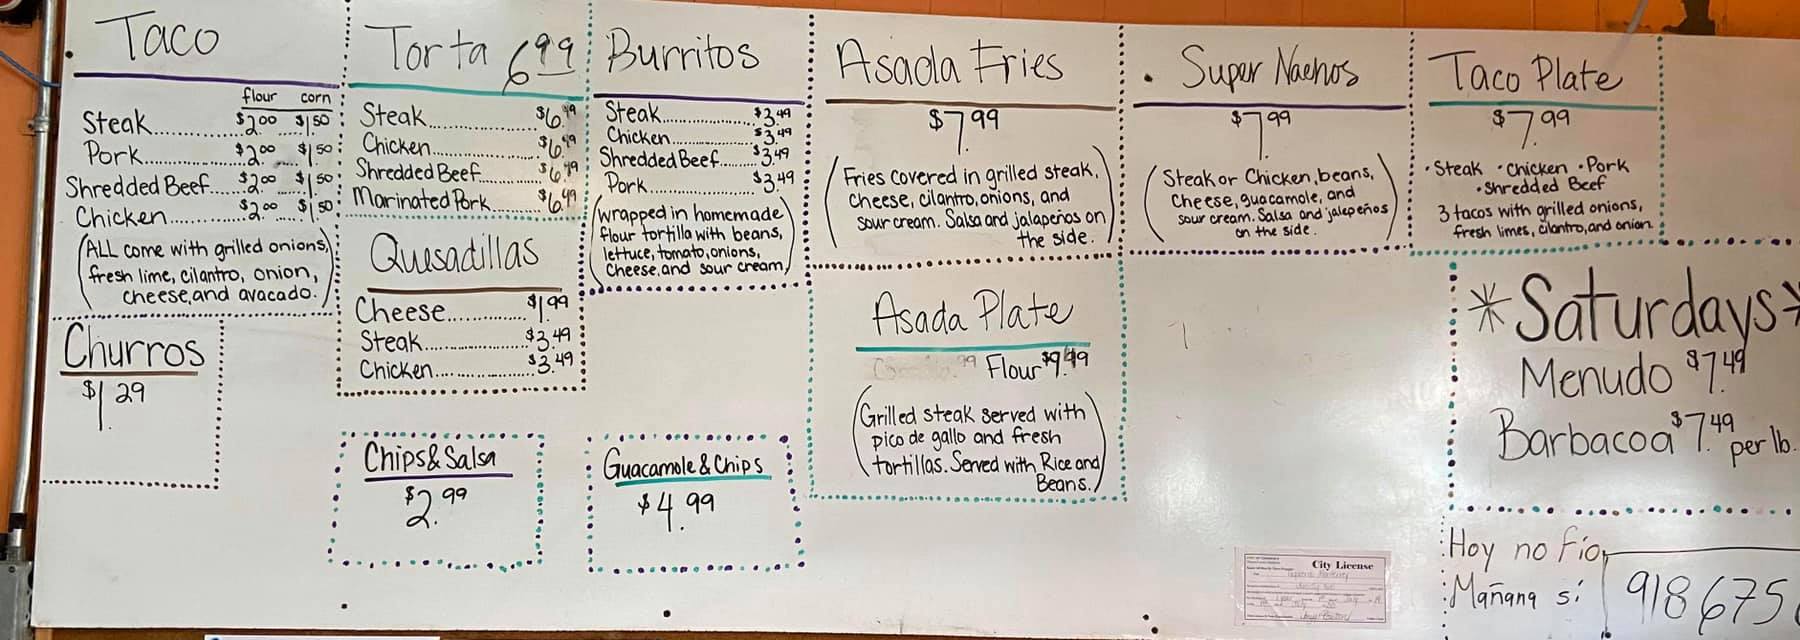 Taco
flour corn
Steak............$2.00 ....$1.50
Pork............$2.00 .... $1.50
Shredded Beef......$2.00 ....$1.50
Chicken............$2.00 ....$1.50
(ALL come with grilled onions,
fresh lime, cilantro, onion,
cheese, and avacado.)
Churros
$1.29
Torta 6.99
Steak............$6.49
Chicken............$6.49
Shredded Beef............$6.49
Marinated Pork.........$6.49
Quesadillas
Cheese............$1.99
Steak............$3.49
Chicken............$3.49
Chips & Salsa
$2.99
Burritos
Steak............$3.49
Chicken............$3.49
Shredded Beef........$3.49
Pork............$3.49
(wrapped in homemade
flour tortilla with beans,
lettuce, tomato, onions,
cheese, and sour cream)
Guacamole & Chips
$4.99
Asada Fries
$7.99
(Fries covered in grilled steak,
cheese, cilantro, onions, and
sour cream. Salsa and jalapeños on
the side.)
Asada Plate
Flour $9.49
(Grilled steak served with
pico de gallo and fresh
tortillas. Served with Rice and
Beans.)
Super Nachos
$7.99
(Steak or Chicken, beans,
cheese, guacamole, and
sour cream. Salsa and jalepeños
on the side.)
Taco Plate
$7.99
• Steak • Chicken • Pork
• Shredded Beef
3 tacos with grilled onions,
fresh limes, cilantro, and onion.
*Saturdays*
Menudo $7.49
Barbacoa $7.49 per lb.
Hoy no fío,
Mañana sí
918 675
City License